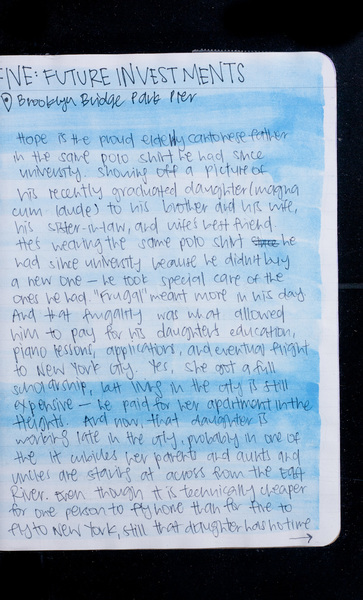 FIVE: FUTURE INVESTMENTS
Brooklyn Bridge Park Pier
Hope is the proud elderly cantonese father
in the same polo shirt he had since
university. Showing off a picture of
his recently graduated daughter (magna
cum laude) to his brother and his wife,
his sister-in-law, and wife's best friend.
He's wearing the same polo shirt he
had since university because he didn't buy
a new one – he took special care of the
ones he had. "Frugal" meant more in his day.
And that frugality was what allowed
him to pay for his daughter's education,
piano lessons, applications, and eventual flight
to New York City. Yes, she got a full
scholarship, but living in the city is still
expensive – he paid for her apartment in the
Heights. And now, that daughter is
working late in the city, probably in one of
the lit cubicles her parents and aunts and
uncles are staring at across from the East
River. Even though it is technically cheaper
for one person to fly home than for five to
fly to New York, still that daughter has no time
→